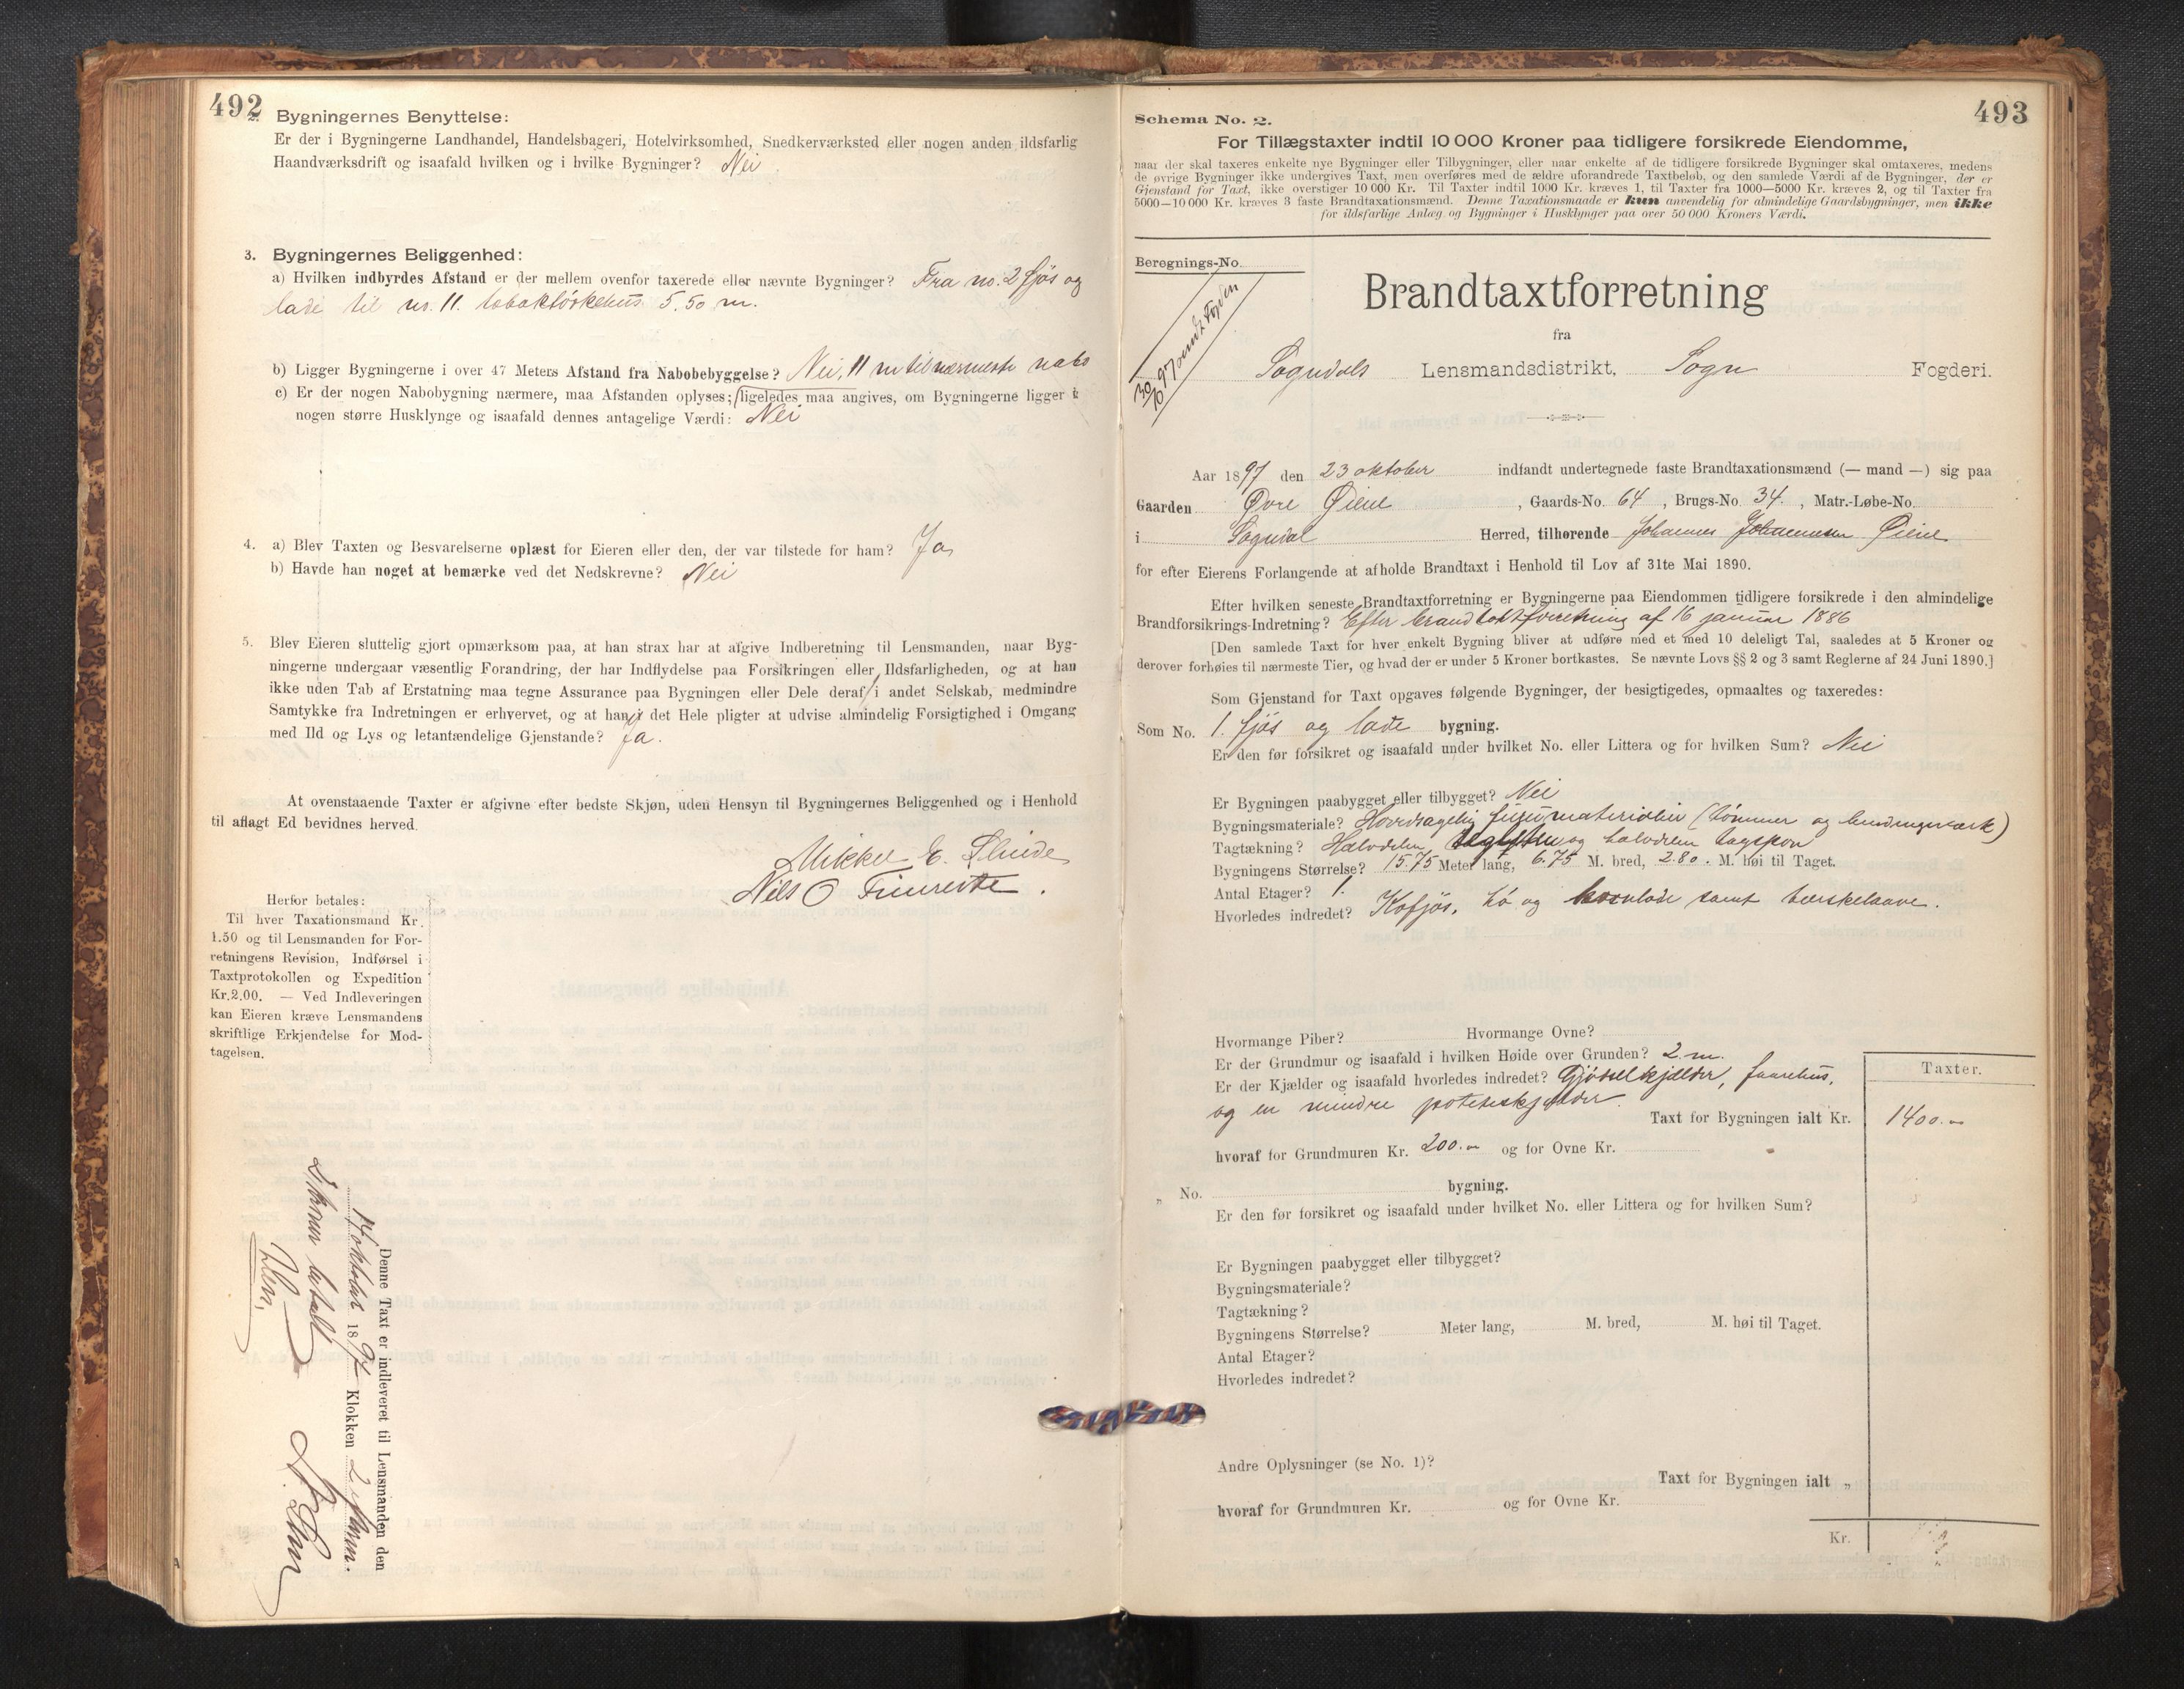 492
2. Bygningernes Benyttelse:
Er der i Bygningerne Landhandel, Handelsbageri, Hotelvirksomhed, Snedkerværksted eller nogen anden ildsfarlig
Haandværksdrift og isaafald hvilken og i hvilke Bygninger? Nei
3. Bygningernes Beliggenhed:
a) Hvilken indbyrdes Afstand er der mellem ovenfor taxerede eller nævnte Bygninger? Fra no. 2 fjøs og
lade til no. 11. tobaktörkehus 5.50 m.
b) Ligger Bygningerne i over 47 Meters Afstand fra Nabobebyggelse? Nei, 11 m til nærmeste nabo
c) Er der nogen Nabobygning nærmere, maa Afstanden oplyses; ligeledes maa angives, om Bygningerne ligger i
nogen større Husklynge og isaafald dennes antagelige Værdi: Nei
4. a) Blev Taxten og Besvarelserne oplæst for Eieren eller den, der var tilstede for ham? Ja
b) Havde han noget at bemærke ved det Nedskrevne? Nei
5. Blev Eieren sluttelig gjort opmærksom paa, at han strax har at afgive Indberetning til Lensmanden, naar Byg-
ningerne undergaar væsentlig Forandring, der har Indflydelse paa Forsikringen eller Ildsfarligheden, og at han
ikke uden Tab af Erstatning maa tegne Assurance paa Bygningen eller Dele deraf i andet Selskab, medmindre
Samtykke fra Indretningen er erhvervet, og at han i det Hele pligter at udvise almindelig Forsigtighed i Omgang
med Ild og Lys og letantændelige Gjenstande? Ja.
At ovenstaaende Taxter er afgivne efter bedste Skjøn, uden Hensyn til Bygningernes Beliggenhed og i Henhold
til aflagt Ed bevidnes herved.
Mikkel E. Slinde
Nils O
Herfor betales:
Til hver Taxationsmand Kr.
1.50 og til Lensmanden for For-
retningens Revision, Indførsel i
Taxtprotokollen og Expedition
Kr. 2.00. — Ved Indleveringen
kan Eieren kræve Lensmandens
skriftlige Erkjendelse for Mod-
tagelsen.
Denne Taxt er indleveret til Lensmanden den
14 oktober 1897 Klokken 2 eftm.
2 kroner betalt
493
Schema No. 2.
For Tillægstaxter indtil 10 000 Kroner paa tidligere forsikrede Eiendomme,
naar der skal taxeres enkelte nye Bygninger eller Tilbygninger, eller naar enkelte af de tidligere forsikrede Bygninger skal omtaxeres, medens
de øvrige Bygninger ikke undergives Taxt, men overføres med de ældre uforandrede Taxtbeløb, og den samlede Værdi af de Bygninger, der er
Gjenstand for Taxt, ikke overstiger 10 000 Kr. Til Taxter indtil 1000 Kr. kræves 1, til Taxter fra 1000—5000 Kr. kræves 2, og til Taxter fra
5000—10 000 Kr. kræves 3 faste Brandtaxationsmænd. Denne Taxationsmaade er kun anvendelig for almindelige Gaardsbygninger, men ikke
for ildsfarlige Anlæg og Bygninger i Husklynger paa over 50 000 Kroners Værdi.
Beregnings-No.
30/10 97 sendt Fogden
Brandtaxtforretning
fra
Sogndals Lensmandsdistrikt, Sogn Fogderi.
Aar 1897 den 23 oktober indfandt undertegnede faste Brandtaxationsmænd (— mand —) sig paa
Gaarden Øvre Øiene, Gaards-No. 64, Brugs-No. 34., Matr.-Løbe-No.
i Sogndal Herred, tilhørende Johannes Johannessen Øiene
for efter Eierens Forlangende at afholde Brandtaxt i Henhold til Lov af 31te Mai 1890.
Efter hvilken seneste Brandtaxtforretning er Bygningerne paa Eiendommen tidligere forsikrede i den almindelige
Brandforsikrings-Indretning? Efter brandtaktforretning af 16 januar 1886
[Den samlede Taxt for hver enkelt Bygning bliver at udføre med et med 10 deleligt Tal, saaledes at 5 Kroner og
derover forhøies til nærmeste Tier, og hvad der er under 5 Kroner bortkastes. Se nævnte Lovs §§ 2 og 3 samt Reglerne af 24 Juni 1890.]
Som Gjenstand for Taxt opgaves følgende Bygninger, der besigtigedes, opmaaltes og taxeredes:
Som No. 1. fjøs og lade bygning.
Er den før forsikret og isaafald under hvilket No. eller Littera og for hvilken Sum? Nei
Er Bygningen paabygget eller tilbygget? Nei
Bygningsmateriale? Hovedsagelig furumaterialier (tømmer og bindingsværk)
Tagtækning? Halvdelen tegelsten og halvdelen tagspon
Bygningens Størrelse? 15.75 Meter lang, 6.75 M. bred, 2.80. M. høi til Taget.
Antal Etager? 1.
Hvorledes indredet? Kofjøs, hø og kornlade samt tærskelaave.
Hvormange Piber? Hvormange Ovne?
Er der Grundmur og isaafald i hvilken Høide over Grunden? 2 m.
Er der Kjælder og isaafald hvorledes indredet? Gjødselkjælder, faarehus,
og en mindre poteteskjælder.
Taxter.
Taxt for Bygningen ialt Kr. 1400.
hvoraf for Grundmuren Kr. 200. og for Ovne Kr.
„ No. bygning.
Er den før forsikret og isaafald under hvilket No. eller Littera og for hvilken Sum?
Er Bygningen paabygget eller tilbygget?
Bygningsmateriale?
Tagtækning?
Bygningens Størrelse? Meter lang, M. bred, M. høi til Taget.
Antal Etager?
Hvorledes indredet?
Andre Oplysninger (se No. 1)?
Taxt for Bygningen ialt „
hvoraf for Grundmuren Kr. og for Ovne Kr.
Kr.